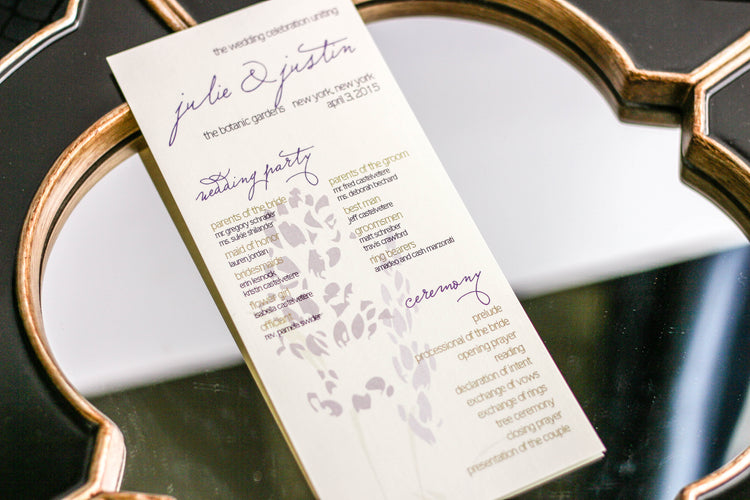 the wedding celebration uniting
julie & justin
the botanic gardens new york, new york
april 3, 2015
wedding party
parents of the bride
mr. gregory schrader
ms. sukie shilander
maid of honor
lauren jordan
bridesmaids
erin lesnock
kristin castelvetere
flower girl
isabella castelvetere
officient
rev. pamela swider
parents of the groom
mr. fred castelvetere
ms. deborah bechard
best man
jeff castelvetere
groomsmen
matt schreiber
travis crawford
ring bearers
amadeo and cash manzonati
ceremony
prelude
processional of the bride
opening prayer
reading
declaration of intent
exchange of vows
exchange of rings
tree ceremony
closing prayer
presentation of the couple